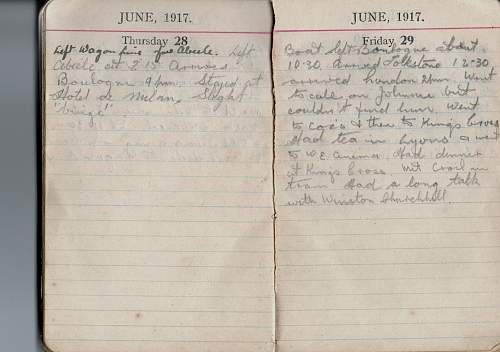 JUNE, 1917.
Thursday 28
Left Wagon line for Abeele. Left
Abeele at 2.15 Arrives
Boulogne 9 pm. Stayed at
Hotel de Milan. Slight
"binge"
JUNE, 1917.
Friday 29
Boat left Boulogne about
10.30. Arrived Folkstone 12.30
arrived London 2pm. Went
to call on Johnnie but
couldn't find him. Went
to Cox's & then to Kings Cross
Had tea in Lyons & went
to W.E. Cinema. Had dinner
at Kings Cross. Met in
train Had a long talk
with Winston Churchill.